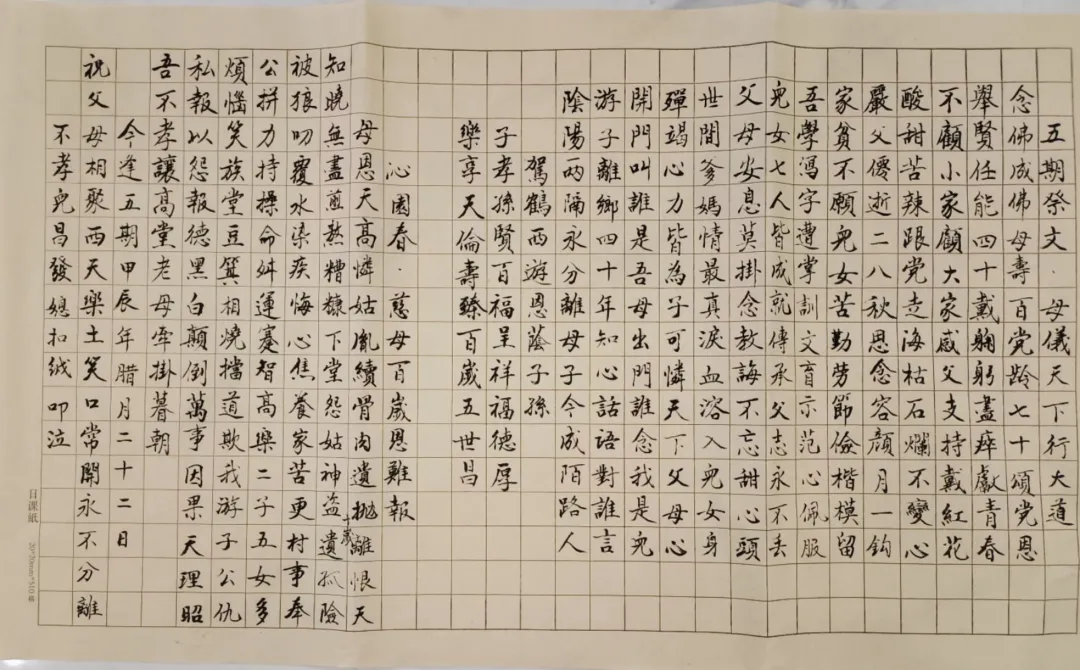 五期祭文·母儀天下行大道
念佛成佛母壽百党龄七十頌党恩
舉賢任能四十戴躬躬盡瘁獻青春
不顧小家顧大家感父支持戴紅花
酸甜苦辣跟党走海枯石爛不變心
嚴父僊逝二八秋思念容顔月一鈎
家貧不願兒女苦勤勞節儉楷模留
吾學寫字遭掌訓文育示范心佩服
兒女七人皆成就傳承父志永不丢
父母安息莫掛念教誨不忘甜心頭
世間爹媽情最真淚血溶入兒女身
殫竭心力皆為子可憐天下父母心
開門叫誰是吾母出門誰念我是兒
游子離鄉四十年知心話語對誰言
陰陽兩隔永分離母子今成陌路人
駕鶴西遊恩蔭子孫
子孝孫賢百福呈祥福德厚
樂享天倫壽臻百歲五世昌
沁園春·慈母百歲恩難報
母恩天高憐姑胤續骨肉遺抛離恨天
知曉無盡煎熬糟糠下堂怨姑神盗十歲遺孤險
被狼叨覆水染疾悔心焦養家苦更村事奉
公拼力持操命舛運蹇智高樂二子五女多
煩惱笑族堂豆箕相燒擋道欺我游子公仇
私報以怨報德黑白顛倒萬事因果天理昭
吾不孝讓高堂老母牽掛暮朝
今逢五期甲辰年腊月二十二日
祝父母相聚西天樂土笑口常開永不分離
不孝兒昌發總扣绒叩泣
日課紙